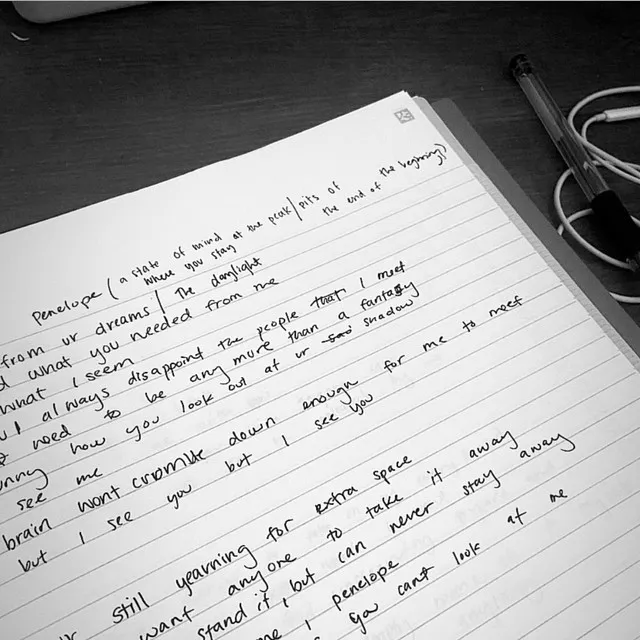 Penelope (a state of mind at the peak/pits of
where you stay the end of the beginning?)
from ur dreams / The daylight
what you needed from me
what I seem
I always disappoint the people that I meet
need to be any more than a fantasy
how you look out at ur shadow
see me
brain wont crumble down enough for me to meet
but I see you but I see you
still yearning for extra space
want anyone to take it away
stand it, but can never stay away
I penelope
you cant look at me